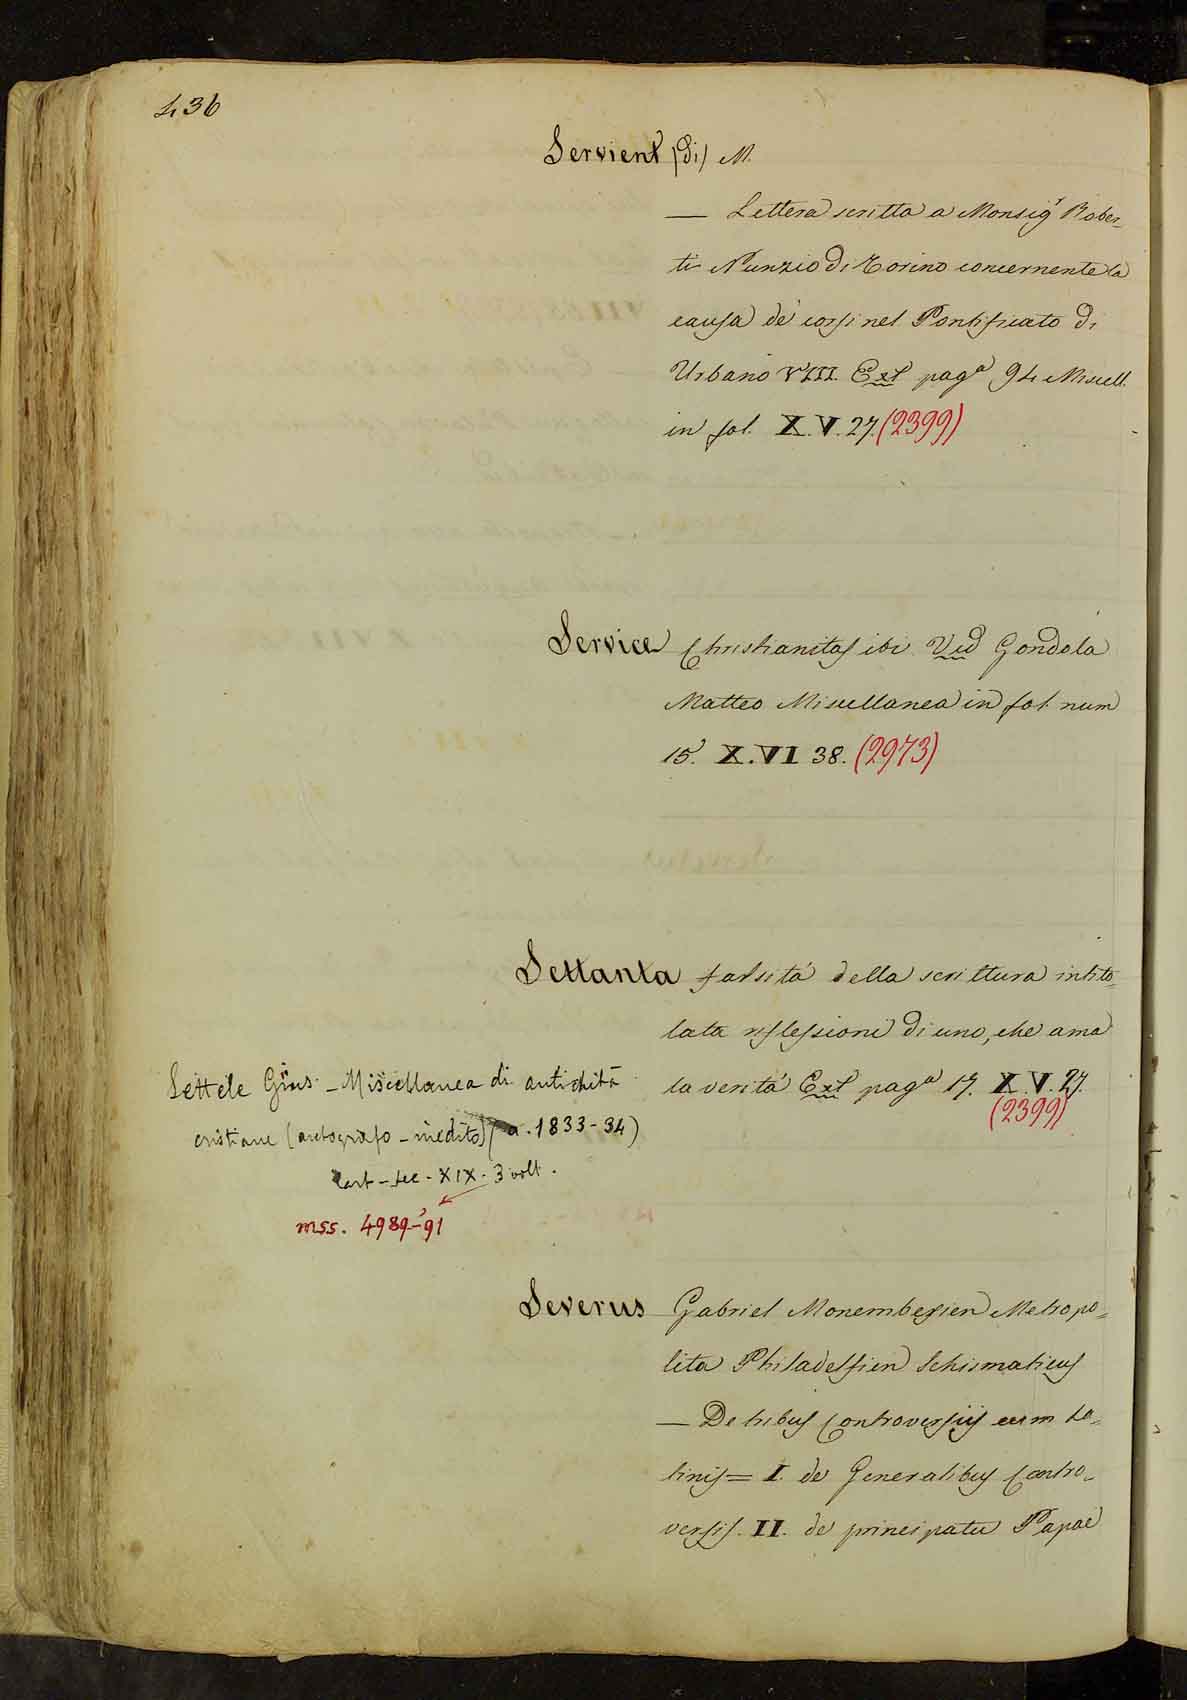 436
Servient (di) M.
— Lettera scritta a Monsigr Rober-
ti Nunzio di Torino concernente la
causa de' corsi nel Pontificato di
Urbano VIII. Ext paga 94 Miscell.
in fol. X.V.27. (2399)
Service Christianitas ibi Ved Gondola
Matteo Miscellanea in fol. num
15. X.VI 38. (2973)
Settanta falsità della scrittura intito-
lata riflessioni di uno, che ama
la verità Ext paga 17. X.V.27.
(2399)
Settele Gius. - Miscellanea di antichità
cristiane (autografo - inedito) (a. 1833-34)
Cart - sec - XIX - 3 voll.
mss. 4989-'91
Severus Gabriel Monembasien Metropo=
lita Philadelfien Schismaticus
— De tribus Controversiis cum La=
tinis = I. de Generalibus Contro-
versis. II. de principatu Papae